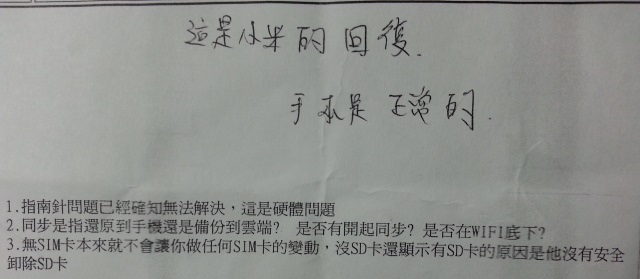 這是小米的回復.
手本是正常的.
1.指南針問題已經確知無法解決，這是硬體問題
2.同步是指還原到手機還是備份到雲端? 是否有開起同步? 是否在WIFI底下?
3.無SIM卡本來就不會讓你做任何SIM卡的變動，沒SD卡還顯示有SD卡的原因是他沒有安全
卸除SD卡